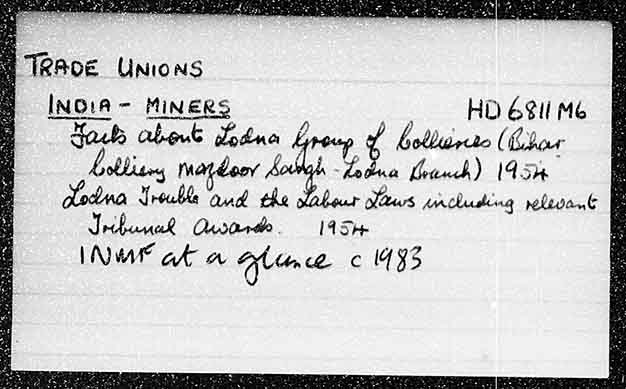 TRADE UNIONS
INDIA - MINERS HD 6811 M6
Facts about Lodna Group of Collieries (Bihar
Colliery Mazdoor Sangh - Lodna Branch) 1954
Lodna Trouble and the Labour Laws including relevant
Tribunal Awards. 1954
INMF at a glance c 1983